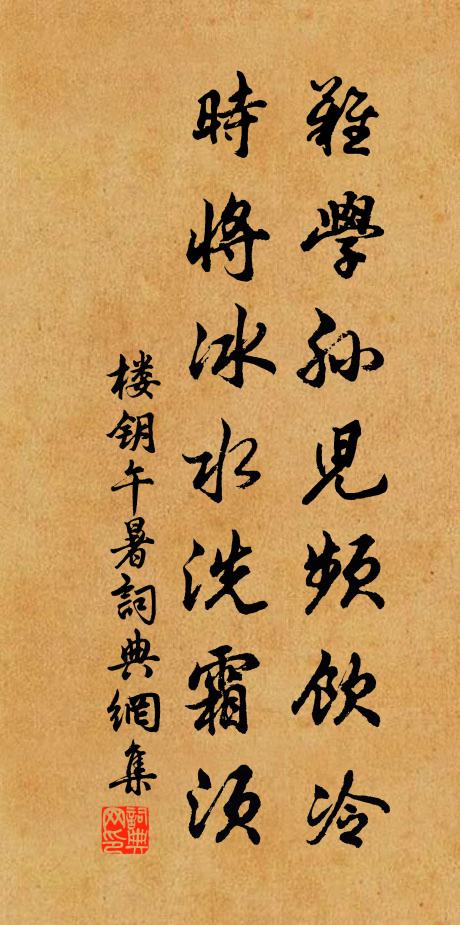 難學孙兒頻飲冷
時將冰水洗霜须
楼钥午暑詞典網集
詞典
网印